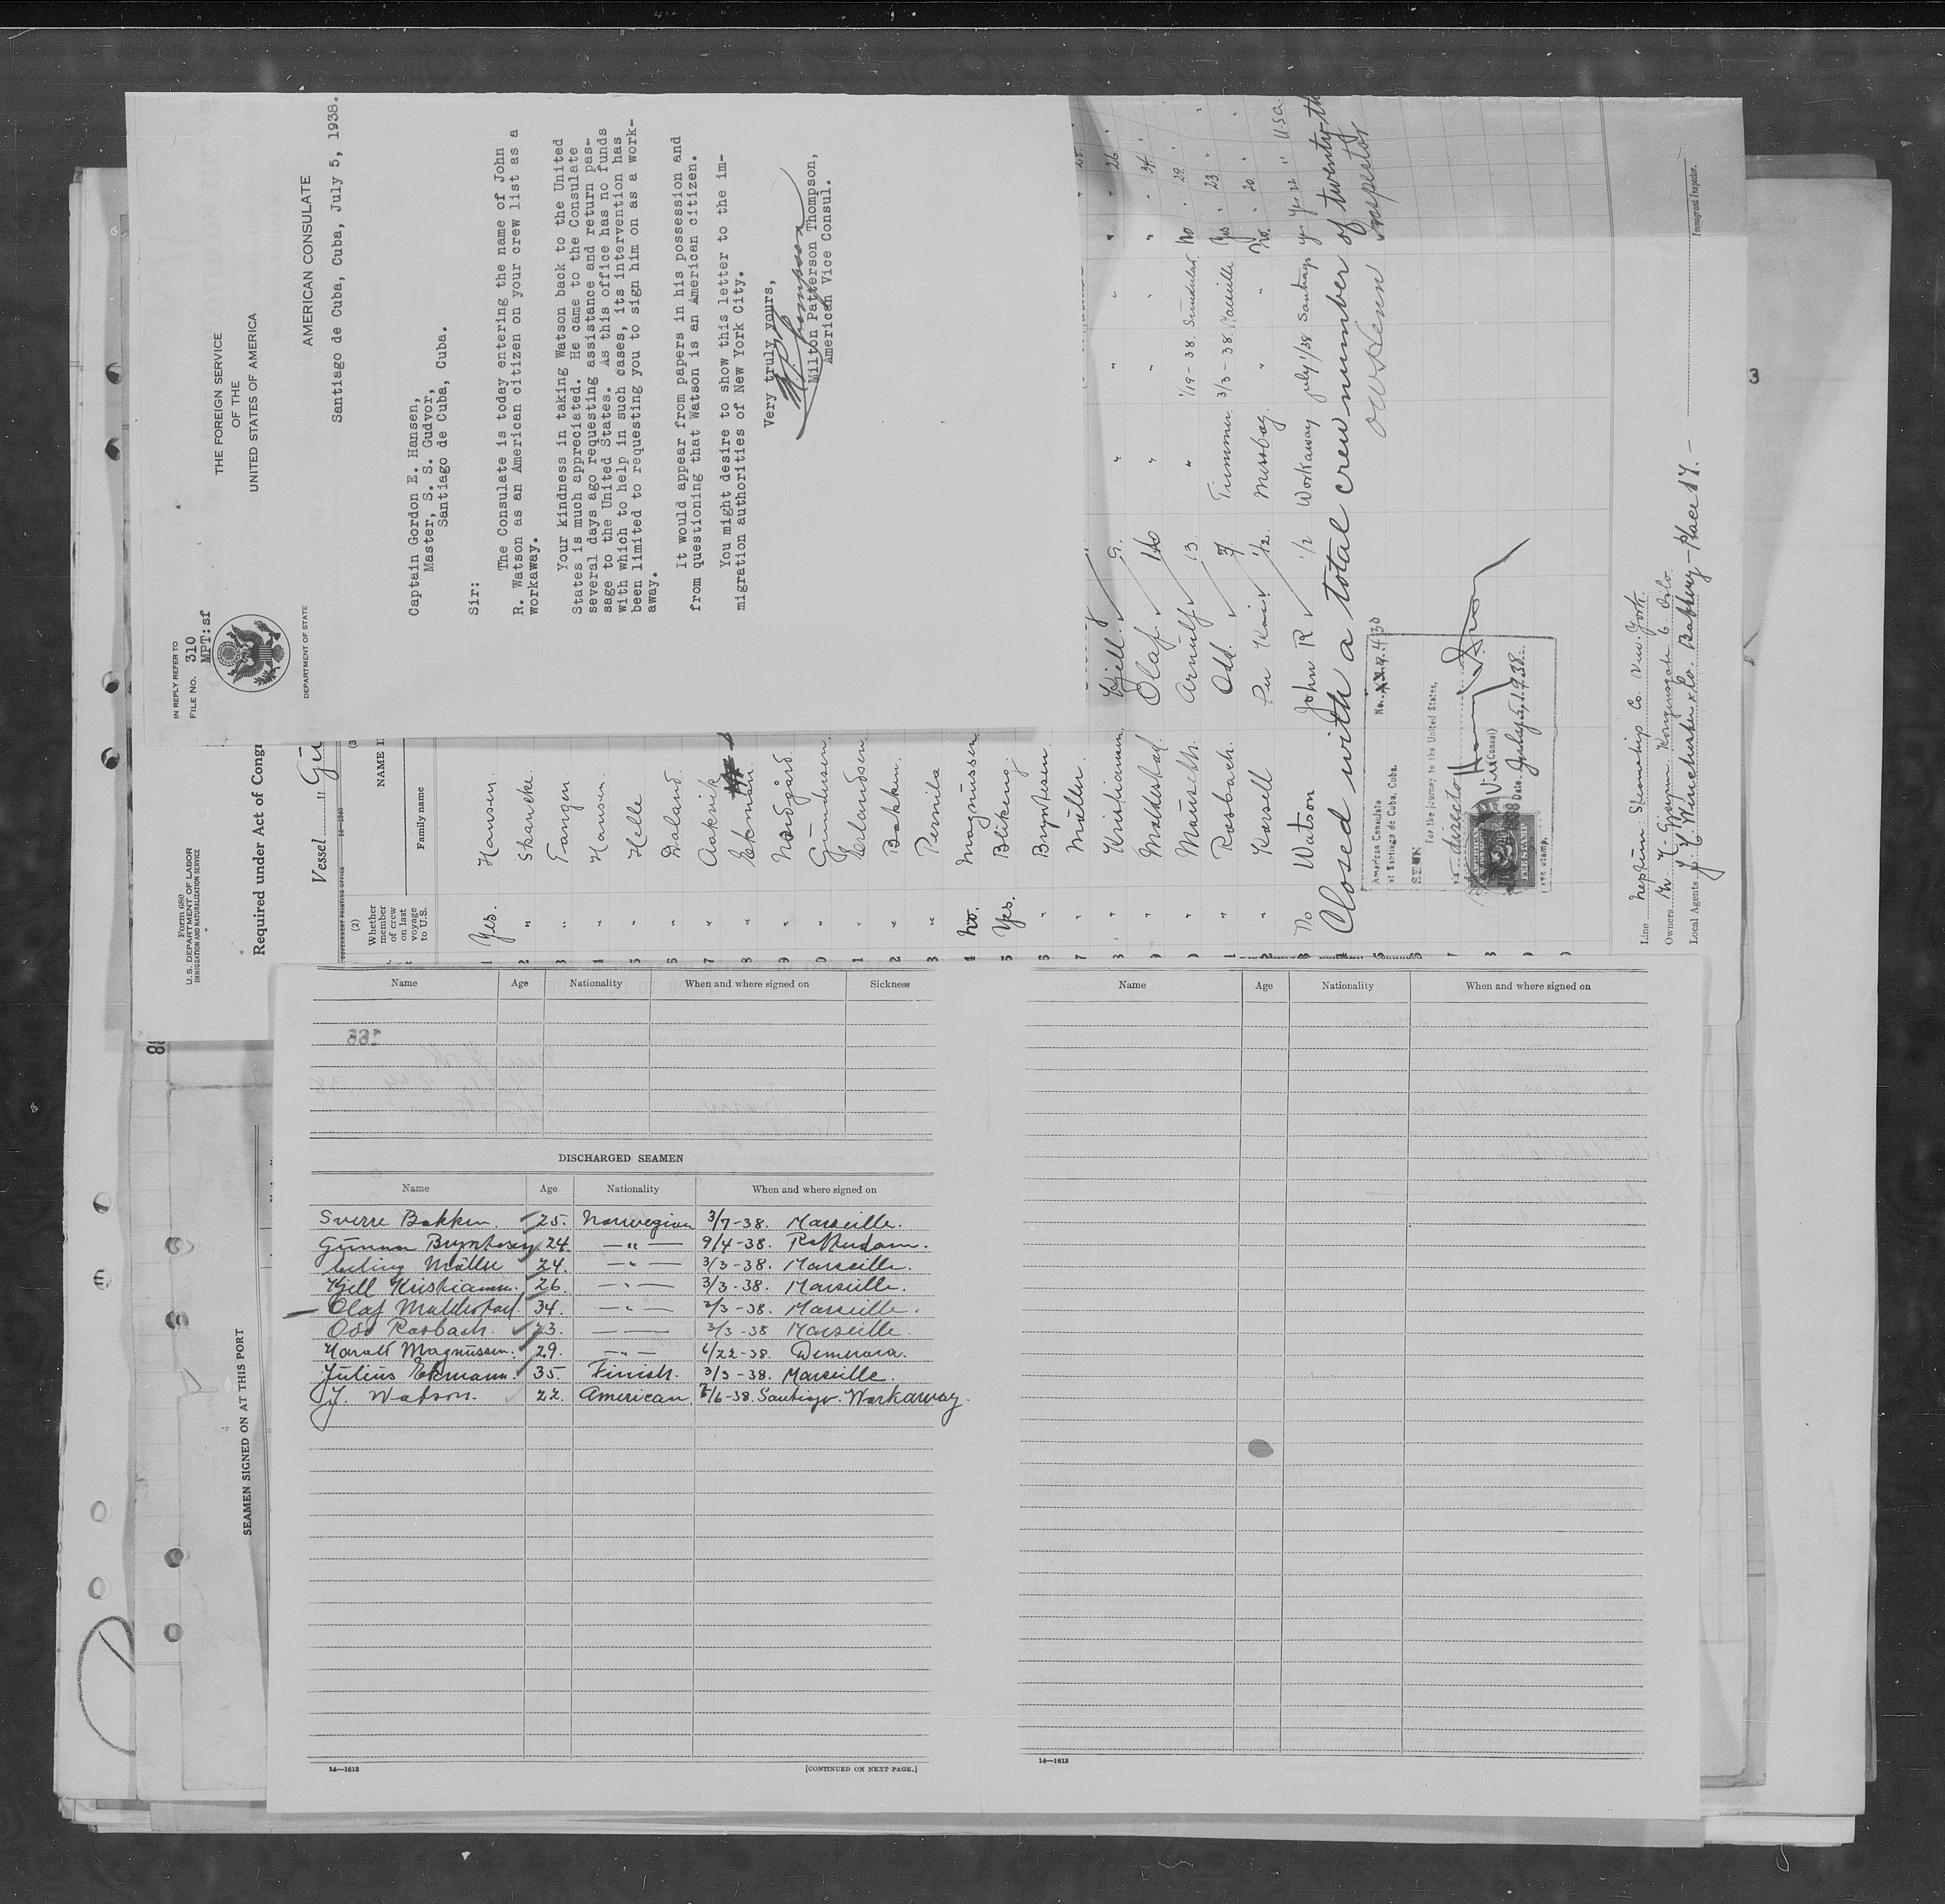 IN REPLY REFER TO
FILE NO. 310
MPT:sf
THE FOREIGN SERVICE
OF THE
UNITED STATES OF AMERICA
DEPARTMENT OF STATE
AMERICAN CONSULATE
Santiago de Cuba, Cuba, July 5, 1938.
Captain Gordon E. Hansen,
Master, S. S. Gudvor,
Santiago de Cuba, Cuba.
Sir:
The Consulate is today entering the name of John
R. Watson as an American citizen on your crew list as a
workaway.
Your kindness in taking Watson back to the United
States is much appreciated. He came to the Consulate
several days ago requesting assistance and return pas-
sage to the United States. As this office has no funds
with which to help in such cases, its intervention has
been limited to requesting you to sign him on as a work-
away.
It would appear from papers in his possession and
from questioning that Watson is an American citizen.
You might desire to show this letter to the im-
migration authorities of New York City.
Very truly yours,
Milton Patterson Thompson,
American Vice Consul.
Form 680
U. S. DEPARTMENT OF LABOR
IMMIGRATION AND NATURALIZATION SERVICE
Required under Act of Congr
Vessel "Gu
(2)
Whether
member
of crew
on last
voyage
to U.S.
(3
NAME I
Family name
1 Yes. Hansen.
2 " Skancke.
3 " Tangen
4 " Hansen.
5 " Helle
6 " Daland.
7 " Aaksvik
8 " Ekman.
9 " Nordgård.
0 " Gundersen.
1 " Erlandsen
2 " Bakken.
3 " Pernila
4 No. Magnussen
5 Yes. Blikeng.
6 " Bryntesen
7 " Müller. 25.
8 " Kristiansen Kjell. 9. " " " " " 26.
9 " Maldestad. Olaf. 160 " " " " - 34.
" Mausith. Arnulf. 13. " 1/19-38. Sunderland No. " 29.
" Rosbach. Odd. 7. Trimmer. 3/3-38. Marseille Yes. " 23.
" Karsell Per Kai 1/2. Messboy. " " No. " 20.
No Watson John R 1/2 Workaway July 1/38 Santiago yes Yes 22 " U.S.A.
Closed with a total crew number of twenty-th
Inspector
American Consulate
at Santiago de Cuba, Cuba.
No. 430
SEEN
For the journey to the United States,
via direct
Vice Consul
Date July 5, 1938.
FEE STAMP
Line Neptun Steamship Co. New York.
Owners
Oslo.
Local Agents J. C. Winchester & Co. Battery-Place 17.-
Immigrant Inspector.
3
88
SEAMEN SIGNED ON AT THIS PORT
Name Age Nationality When and where signed on Sickness
166
DISCHARGED SEAMEN
Name Age Nationality When and where signed on
Sverre Bakken. 25. Norwegian 3/7-38. Marseille.
Gunnar Bryntesen 24. —"— 9/4-38. Rotterdam.
Erling Müller 24. —"— 3/3-38. Marseille.
Kjell Kristiansen. 26. —"— 3/3-38. Marseille.
Olaf Maldestad. 34. —"— 3/3-38. Marseille.
Odd Rosbach. 23. —— 3/3-38 Marseille.
Harald Magnussen. 29. —"— 6/22-38. Demerara.
Julius Ekmann. 35. Finish. 3/3-38. Marseille.
J. Watson. 22. American. 7/6-38. Santiago. Workaway.
14—1613
[CONTINUED ON NEXT PAGE.]
Name Age Nationality When and where signed on
14—1613